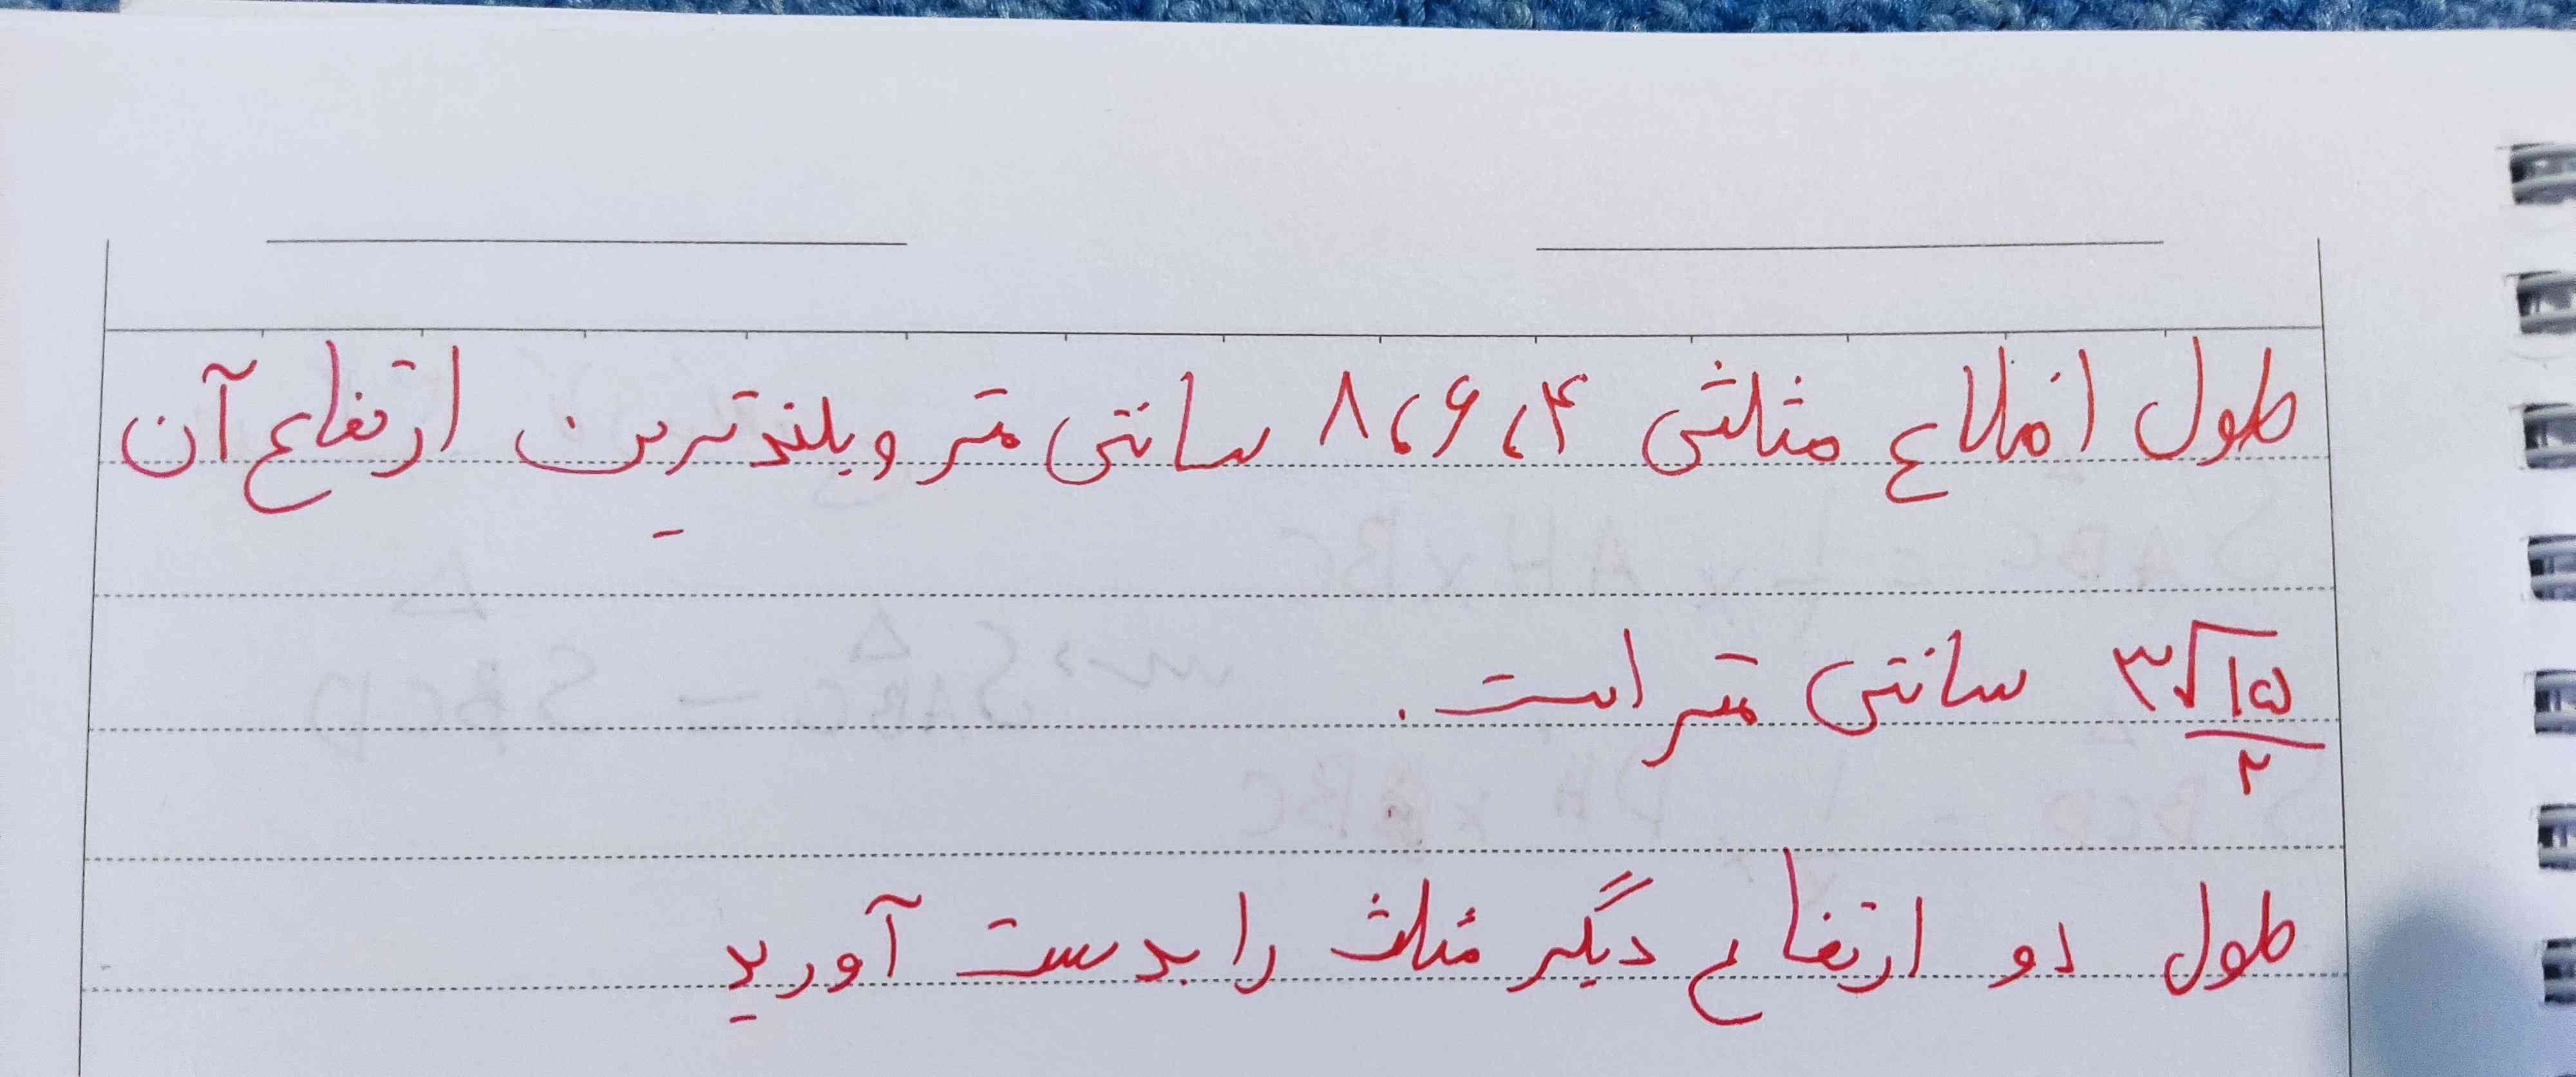 طول اضلاع مثلثی ۴، ۶، ۸ سانتی متر و بلندترین ارتفاع آن
۳√۱۵/۲ سانتی متر است.
طول دو ارتفاع دیگر مثلث را بدست آورید